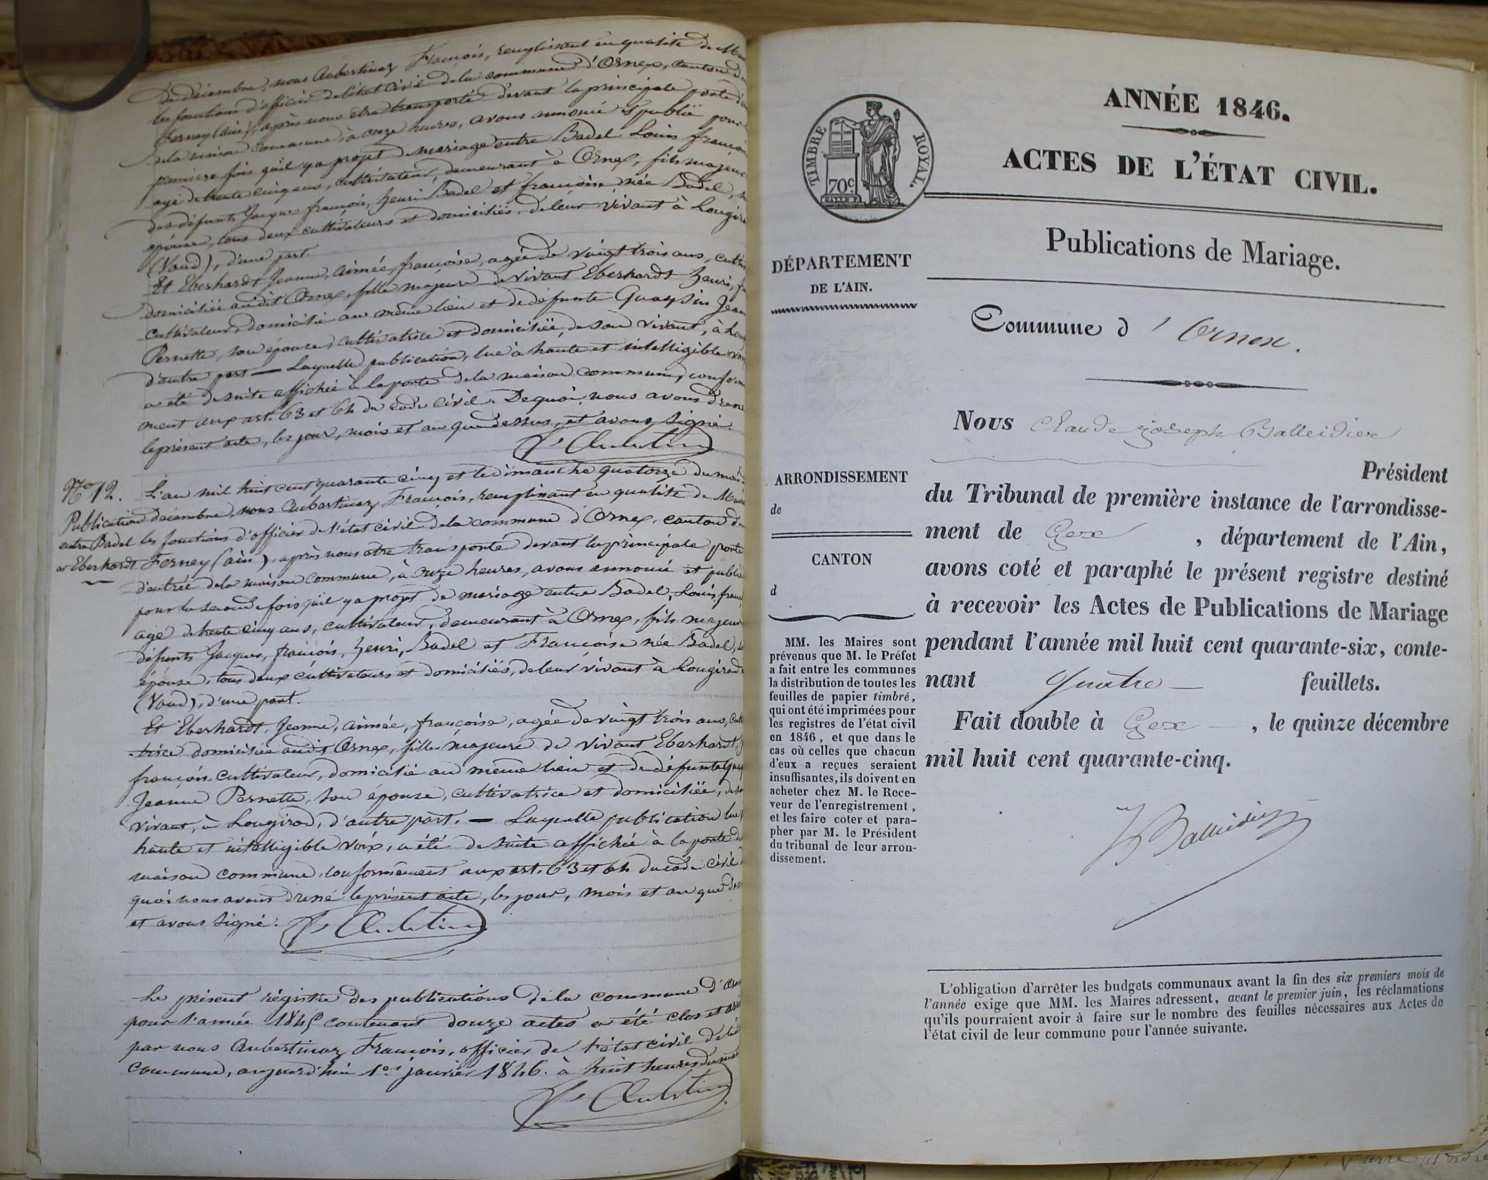 de décembre, nous Aubertinaz François, remplissant en qualité de
les fonctions d'officier de l'état civil de la commune d'Ornex, canton de
Ferney (ain), après nous être transporté devant la principale porte
de la maison commune à onze heures, avons annoncé et publié pour
première fois qu'il y a projet de mariage entre Badel Louis françois
agé de trente cinq ans, cultivateur, demeurant à Ornex, fils majeur
des défunts Jacques françois, henri Badel et françoise née Badel,
épouse, tous deux cultivateurs et domiciliés, de leur vivant à
(Vaud), d'une part.
Et Eberhardt Jeanne, aimée, françoise, agée de vingt trois ans,
domiciliée au dit Ornex, fille majeure de vivant Eberhardt
cultivateur, domicilié au même lieu et de défunte
Pernette, son épouse, cultivatrice et domiciliée, de son vivant, à
d'autre part — Laquelle publication, lue à haute et intelligible
a été de suite affichée à la porte de la maison commune,
ment aux art. 63 et 64 du Code Civil. De quoi nous avons
le présent acte, les jour, mois et an que dessus, et avons signé
No 12.
Publication
entre Badel
et Eberhardt
L'an mil huit cent quarante cinq et le dimanche quatorze du mois
décembre, nous Aubertinaz François, remplissant en qualité de
les fonctions d'officier de l'état civil de la commune d'Ornex, canton de
Ferney (ain), après nous être transporté devant la principale porte
d'entrée de la maison commune, à onze heures, avons annoncé et publié
pour la seconde fois qu'il y a projet de mariage entre Badel, Louis
agé de trente cinq ans, cultivateur, demeurant à Ornex, fils majeur
défunts Jacques, françois, henri, Badel et Françoise née Badel,
épouse, tous deux cultivateurs et domiciliés, de leur vivant à
(Vaud), d'une part.
Et Eberhardt, Jeanne, aimée, françoise, agée de vingt trois ans,
trice domiciliée audit Ornex, fille majeure de vivant Eberhardt,
françois, cultivateur, domicilié au même lieu et de défunte
Jeanne Pernette, son épouse, cultivatrice et domiciliée, de
vivant, à Longirod, d'autre part. — Laquelle publication lue
haute et intelligible voix, a été de suite affichée à la porte de
maison commune, conformément aux art. 63 et 64 du code civil
quoi nous avons dressé le présent acte, les jour, mois et an que
et avons signé :
Le présent régistre des publications de la commune
pour l'année 1845 contenant douze actes a été clos et
par nous Aubertinaz François, officier de l'état civil de
commune, aujourd'hui 1er janvier 1846. à huit heures du
TIMBRE ROYAL.
70c
ANNÉE 1846.
ACTES DE L'ÉTAT CIVIL.
Publications de Mariage.
DÉPARTEMENT
DE L'AIN.
Commune d'Ornex.
ARRONDISSEMENT
de
CANTON
d
MM. les Maires sont
prévenus que M. le Préfet
a fait entre les communes
la distribution de toutes les
feuilles de papier timbré,
qui ont été imprimées pour
les registres de l'état civil
en 1846, et que dans le
cas où celles que chacun
d'eux a reçues seraient
insuffisantes, ils doivent en
acheter chez M. le Rece-
veur de l'enregistrement,
et les faire coter et para-
pher par M. le Président
du tribunal de leur arron-
dissement.
Nous Claude Joseph Balleidier
Président
du Tribunal de première instance de l'arrondisse-
ment de Gex, département de l'Ain,
avons coté et paraphé le présent registre destiné
à recevoir les Actes de Publications de Mariage
pendant l'année mil huit cent quarante-six, conte-
nant quatre — feuillets.
Fait double à Gex —, le quinze décembre
mil huit cent quarante-cinq.
L'obligation d'arrêter les budgets communaux avant la fin des six premiers mois de
l'année exige que MM. les Maires adressent, avant le premier juin, les réclamations
qu'ils pourraient avoir à faire sur le nombre des feuilles nécessaires aux Actes de
l'état civil de leur commune pour l'année suivante.